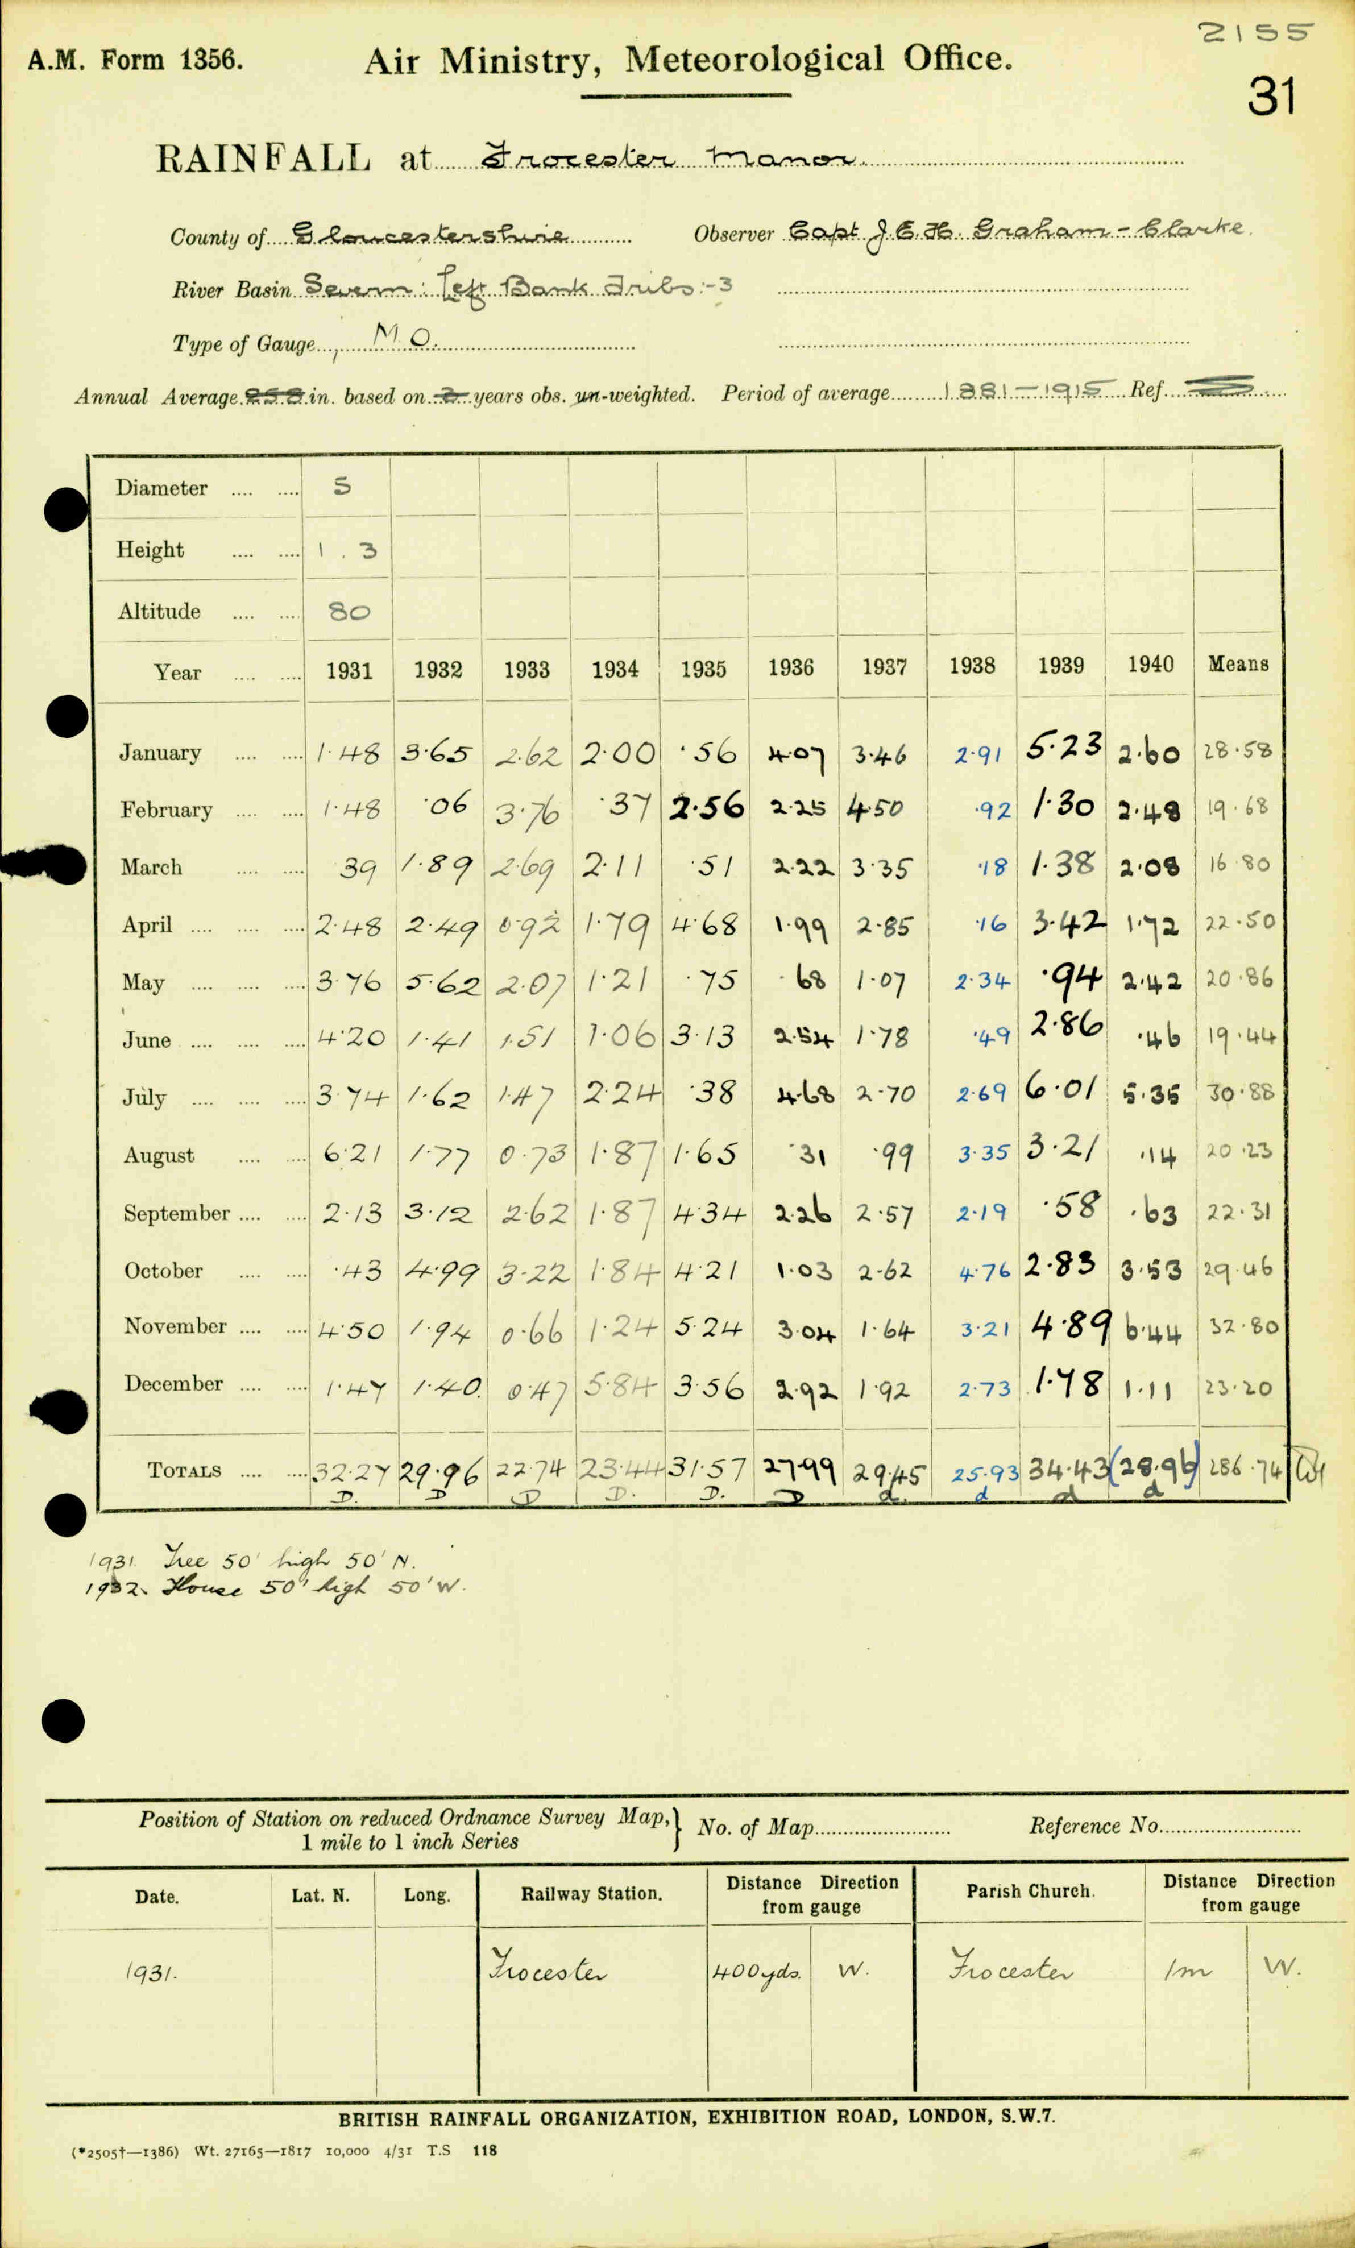 2155
A.M. Form 1356. Air Ministry, Meteorological Office.
31
RAINFALL at Frocester Manor.
County of Gloucestershire Observer Capt J.E.H. Graham-Clarke
River Basin Severn: Left Bank Tribs:-3
Type of Gauge M.O.
Annual Average in. based on years obs. un-weighted. Period of average 1881-1915 Ref.
Diameter .... .... 5
Height .... .... 1 . 3
Altitude .... .... 80
Year .... .... 1931 1932 1933 1934 1935 1936 1937 1938 1939 1940 Means
January .... .... 1.48 3.65 2.62 2.00 .56 4.07 3.46 2.91 5.23 2.60 28.58
February .... .... 1.48 .06 3.76 .37 2.56 2.25 4.50 .92 1.30 2.48 19.68
March .... .... 39 1.89 2.69 2.11 .51 2.22 3.35 .18 1.38 2.08 16 80
April .... .... .... 2.48 2.49 0.92 1.79 4.68 1.99 2.85 .16 3.42 1.72 22.50
May .... .... .... 3.76 5.62 2.07 1.21 .75 .68 1.07 2.34 .94 2.42 20.86
June .... .... .... 4.20 1.41 1.51 1.06 3.13 2.54 1.78 .49 2.86 .46 19.44
July .... .... .... 3.74 1.62 1.47 2.24 .38 4.68 2.70 2.69 6.01 5.35 30.88
August .... .... 6.21 1.77 0.73 1.87 1.65 .31 .99 3.35 3.21 .14 20.23
September .... .... 2.13 3.12 2.62 1.87 4.34 2.26 2.57 2.19 .58 .63 22.31
October .... .... .43 4.99 3.22 1.84 4.21 1.03 2.62 4.76 2.83 3.53 29.46
November .... .... 4.50 1.94 0.66 1.24 5.24 3.04 1.64 3.21 4.89 6.44 32.80
December .... .... 1.47 1.40. 0.47 5.84 3.56 2.92 1.92 2.73 1.78 1.11 23.20
TOTALS .... .... 32.27 29.96 22.74 23.44 31.57 27.99 29.45 25.93 34.43 (28.96) 286.74
D. D D D. D. D d. d d d
1931. Tree 50' high 50' N.
1932. House 50' high 50' W.
Position of Station on reduced Ordnance Survey Map,} No. of Map Reference No.
1 mile to 1 inch Series
Date. Lat. N. Long. Railway Station. Distance Direction from gauge Parish Church. Distance Direction from gauge
1931. Frocester 400yds. W. Frocester 1m W.
BRITISH RAINFALL ORGANIZATION, EXHIBITION ROAD, LONDON, S.W.7.
(*2505†—1386) Wt. 27165—1817 10,000 4/31 T.S 118